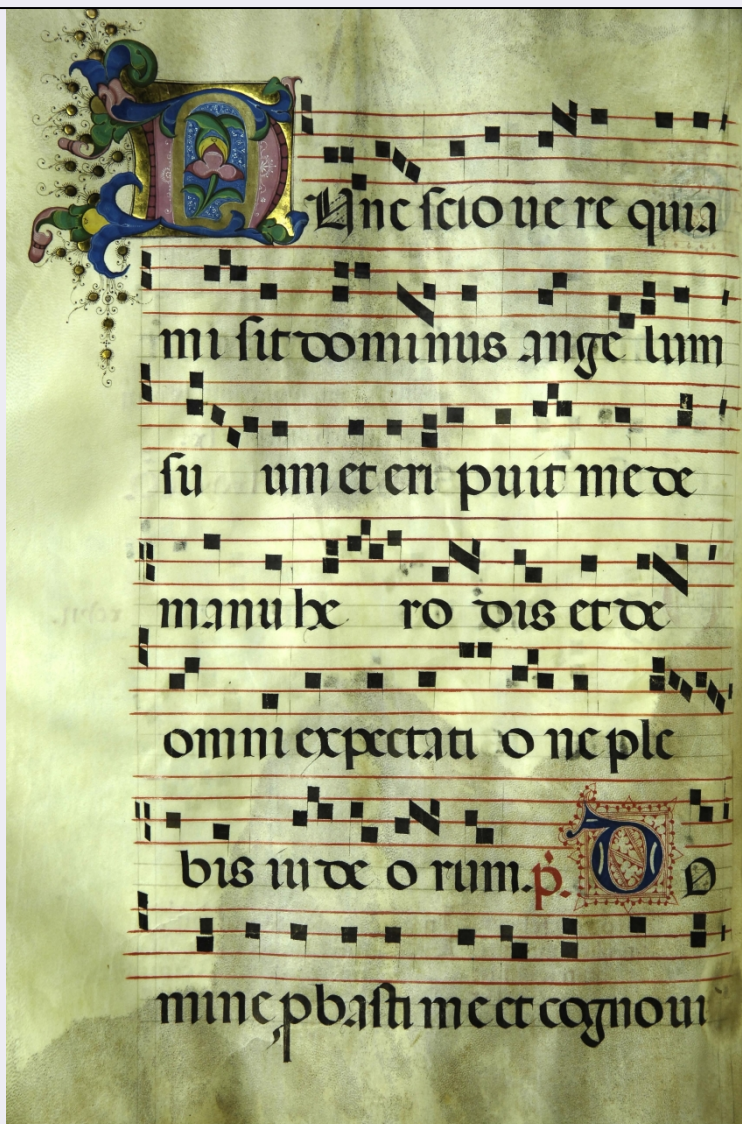 Nunc scio vere quia
misit dominus angelum
suum et eripuit me de
manu herodis et de
omni expectatione ple
bis iudeorum. p. Do
mine pbasti me et cognoui